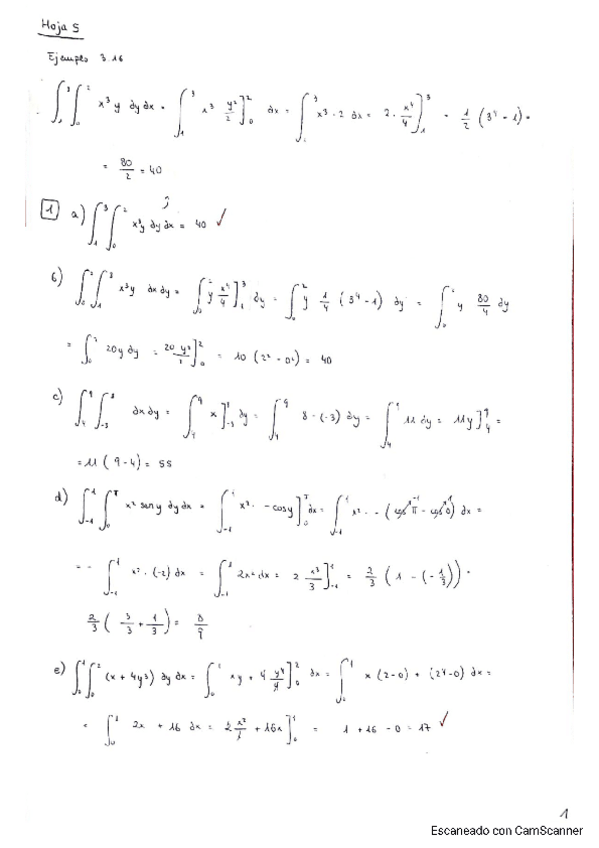 Hoja 5
Ejemplo 3.16
∫₁³ ∫₀² x³ y dy dx = ∫₁³ x³ y²/2 ]₀² dx = ∫₁³ x³ · 2 dx = 2 · x⁴/4 ]₁³ = 1/2 (3⁴ - 1) =
= 80/2 = 40
1 a) ∫₁³ ∫₀² x³y dy dx = 40 ✓
b) ∫₀² ∫₁³ x³y dx dy = ∫₀² y x⁴/4 ]₁³ dy = ∫₀² y 1/4 (3⁴ - 1) dy = ∫₀² y 80/4 dy
= ∫₀² 20y dy = 20 y²/2 ]₀² = 10 (2² - 0²) = 40
c) ∫₄⁹ ∫₋₃⁸ dx dy = ∫₄⁹ x ]₋₃⁸ dy = ∫₄⁹ 8 - (-3) dy = ∫₄⁹ 11 dy = 11y ]₄⁹ =
= 11 (9 - 4) = 55
d) ∫₋₁¹ ∫₀^π x² sen y dy dx = ∫₋₁¹ x² · - cos y ]₀^π dx = ∫₋₁¹ x² · - (cos π - cos 0) dx =
= - ∫₋₁¹ x² · (-2) dx = ∫₋₁¹ 2x² dx = 2 x³/3 ]₋₁¹ = 2/3 (1 - (- 1/3)) =
2/3 ( 3/3 + 1/3 ) = 8/9
e) ∫₀¹ ∫₀² (x + 4y³) dy dx = ∫₀¹ xy + 4 y⁴/4 ]₀² dx = ∫₀¹ x (2 - 0) + (2⁴ - 0) dx =
= ∫₀¹ 2x + 16 dx = 2 x²/2 + 16x ]₀¹ = 1 + 16 - 0 = 17 ✓
1
Escaneado con CamScanner